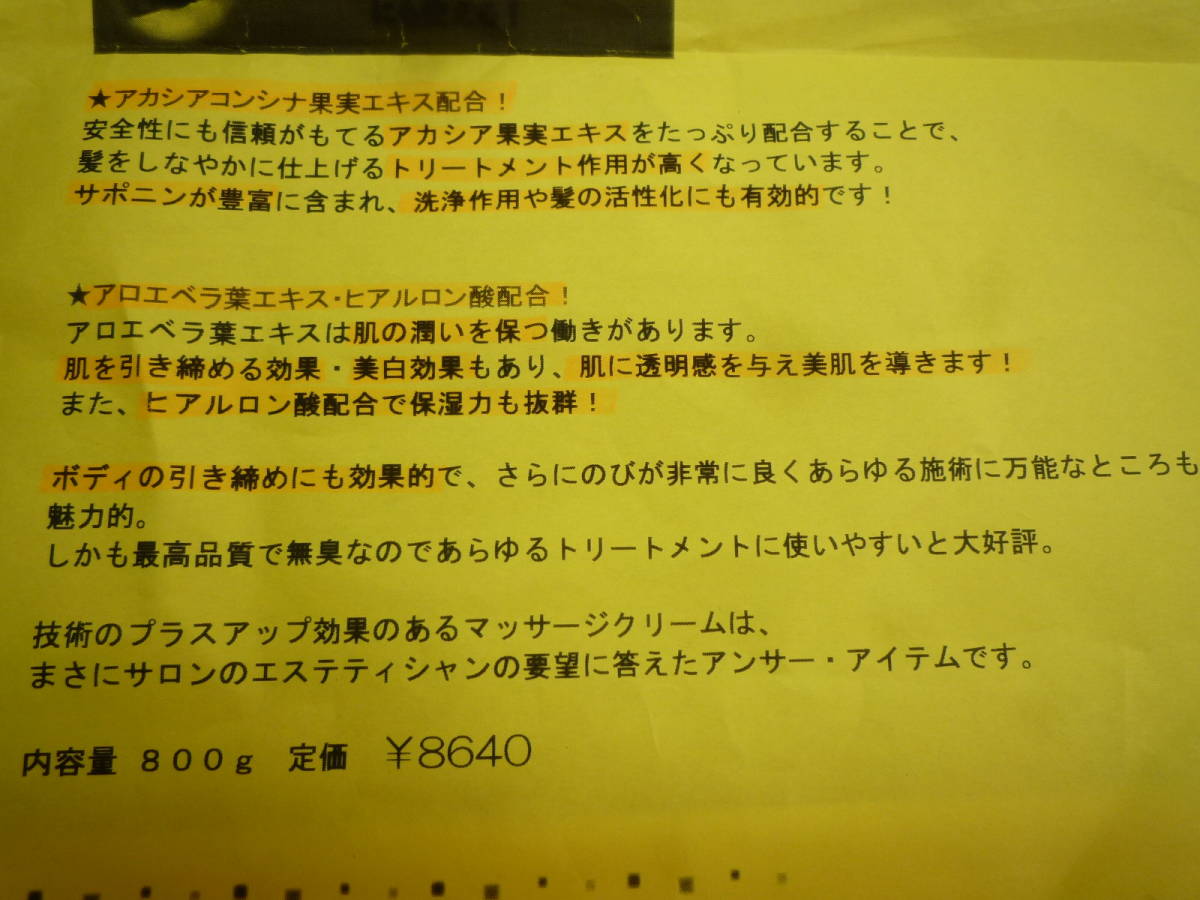 ★アカシアコンシナ果実エキス配合！
安全性にも信頼がもてるアカシア果実エキスをたっぷり配合することで、
髪をしなやかに仕上げるトリートメント作用が高くなっています。
サポニンが豊富に含まれ、洗浄作用や髪の活性化にも有効的です！
★アロエベラ葉エキス・ヒアルロン酸配合！
アロエベラ葉エキスは肌の潤いを保つ働きがあります。
肌を引き締める効果・美白効果もあり、肌に透明感を与え美肌を導きます！
また、ヒアルロン酸配合で保湿力も抜群！
ボディの引き締めにも効果的で、さらにのびが非常に良くあらゆる施術に万能なところも
魅力的。
しかも最高品質で無臭なのであらゆるトリートメントに使いやすいと大好評。
技術のプラスアップ効果のあるマッサージクリームは、
まさにサロンのエステティシャンの要望に答えたアンサー・アイテムです。
内容量 ８００ｇ 定価 ￥8640